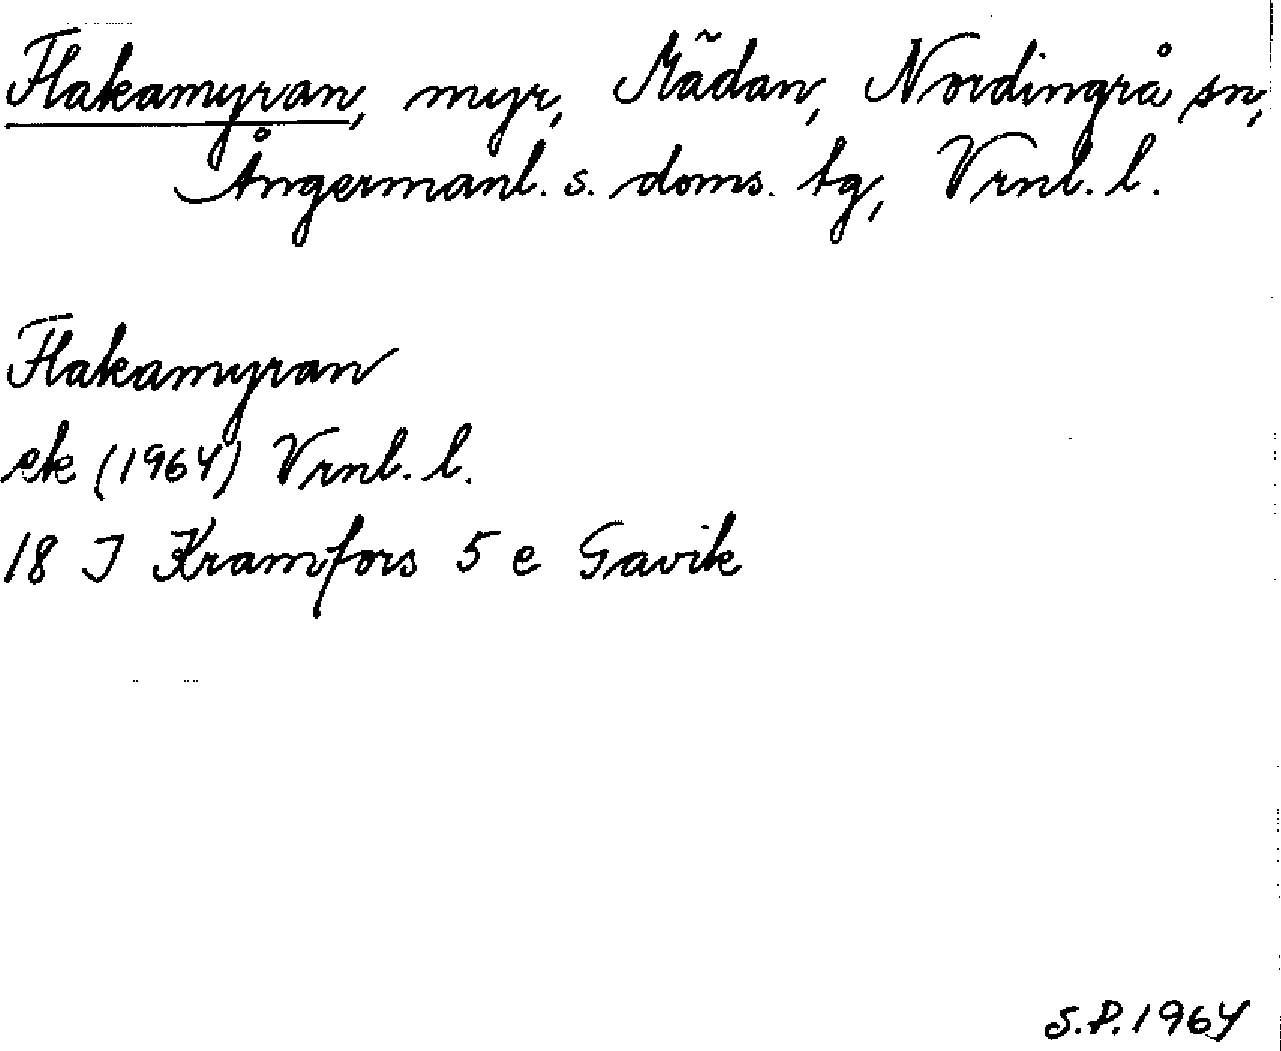 Flakamyran, myr, Mädan, Nordingrå sn,
Ångermanl. s. doms. tg, Vrnl. l.
Flakamyran
ek (1964) Vrnl. l.
18 J Kramfors 5 e Gavik
S.P. 1964